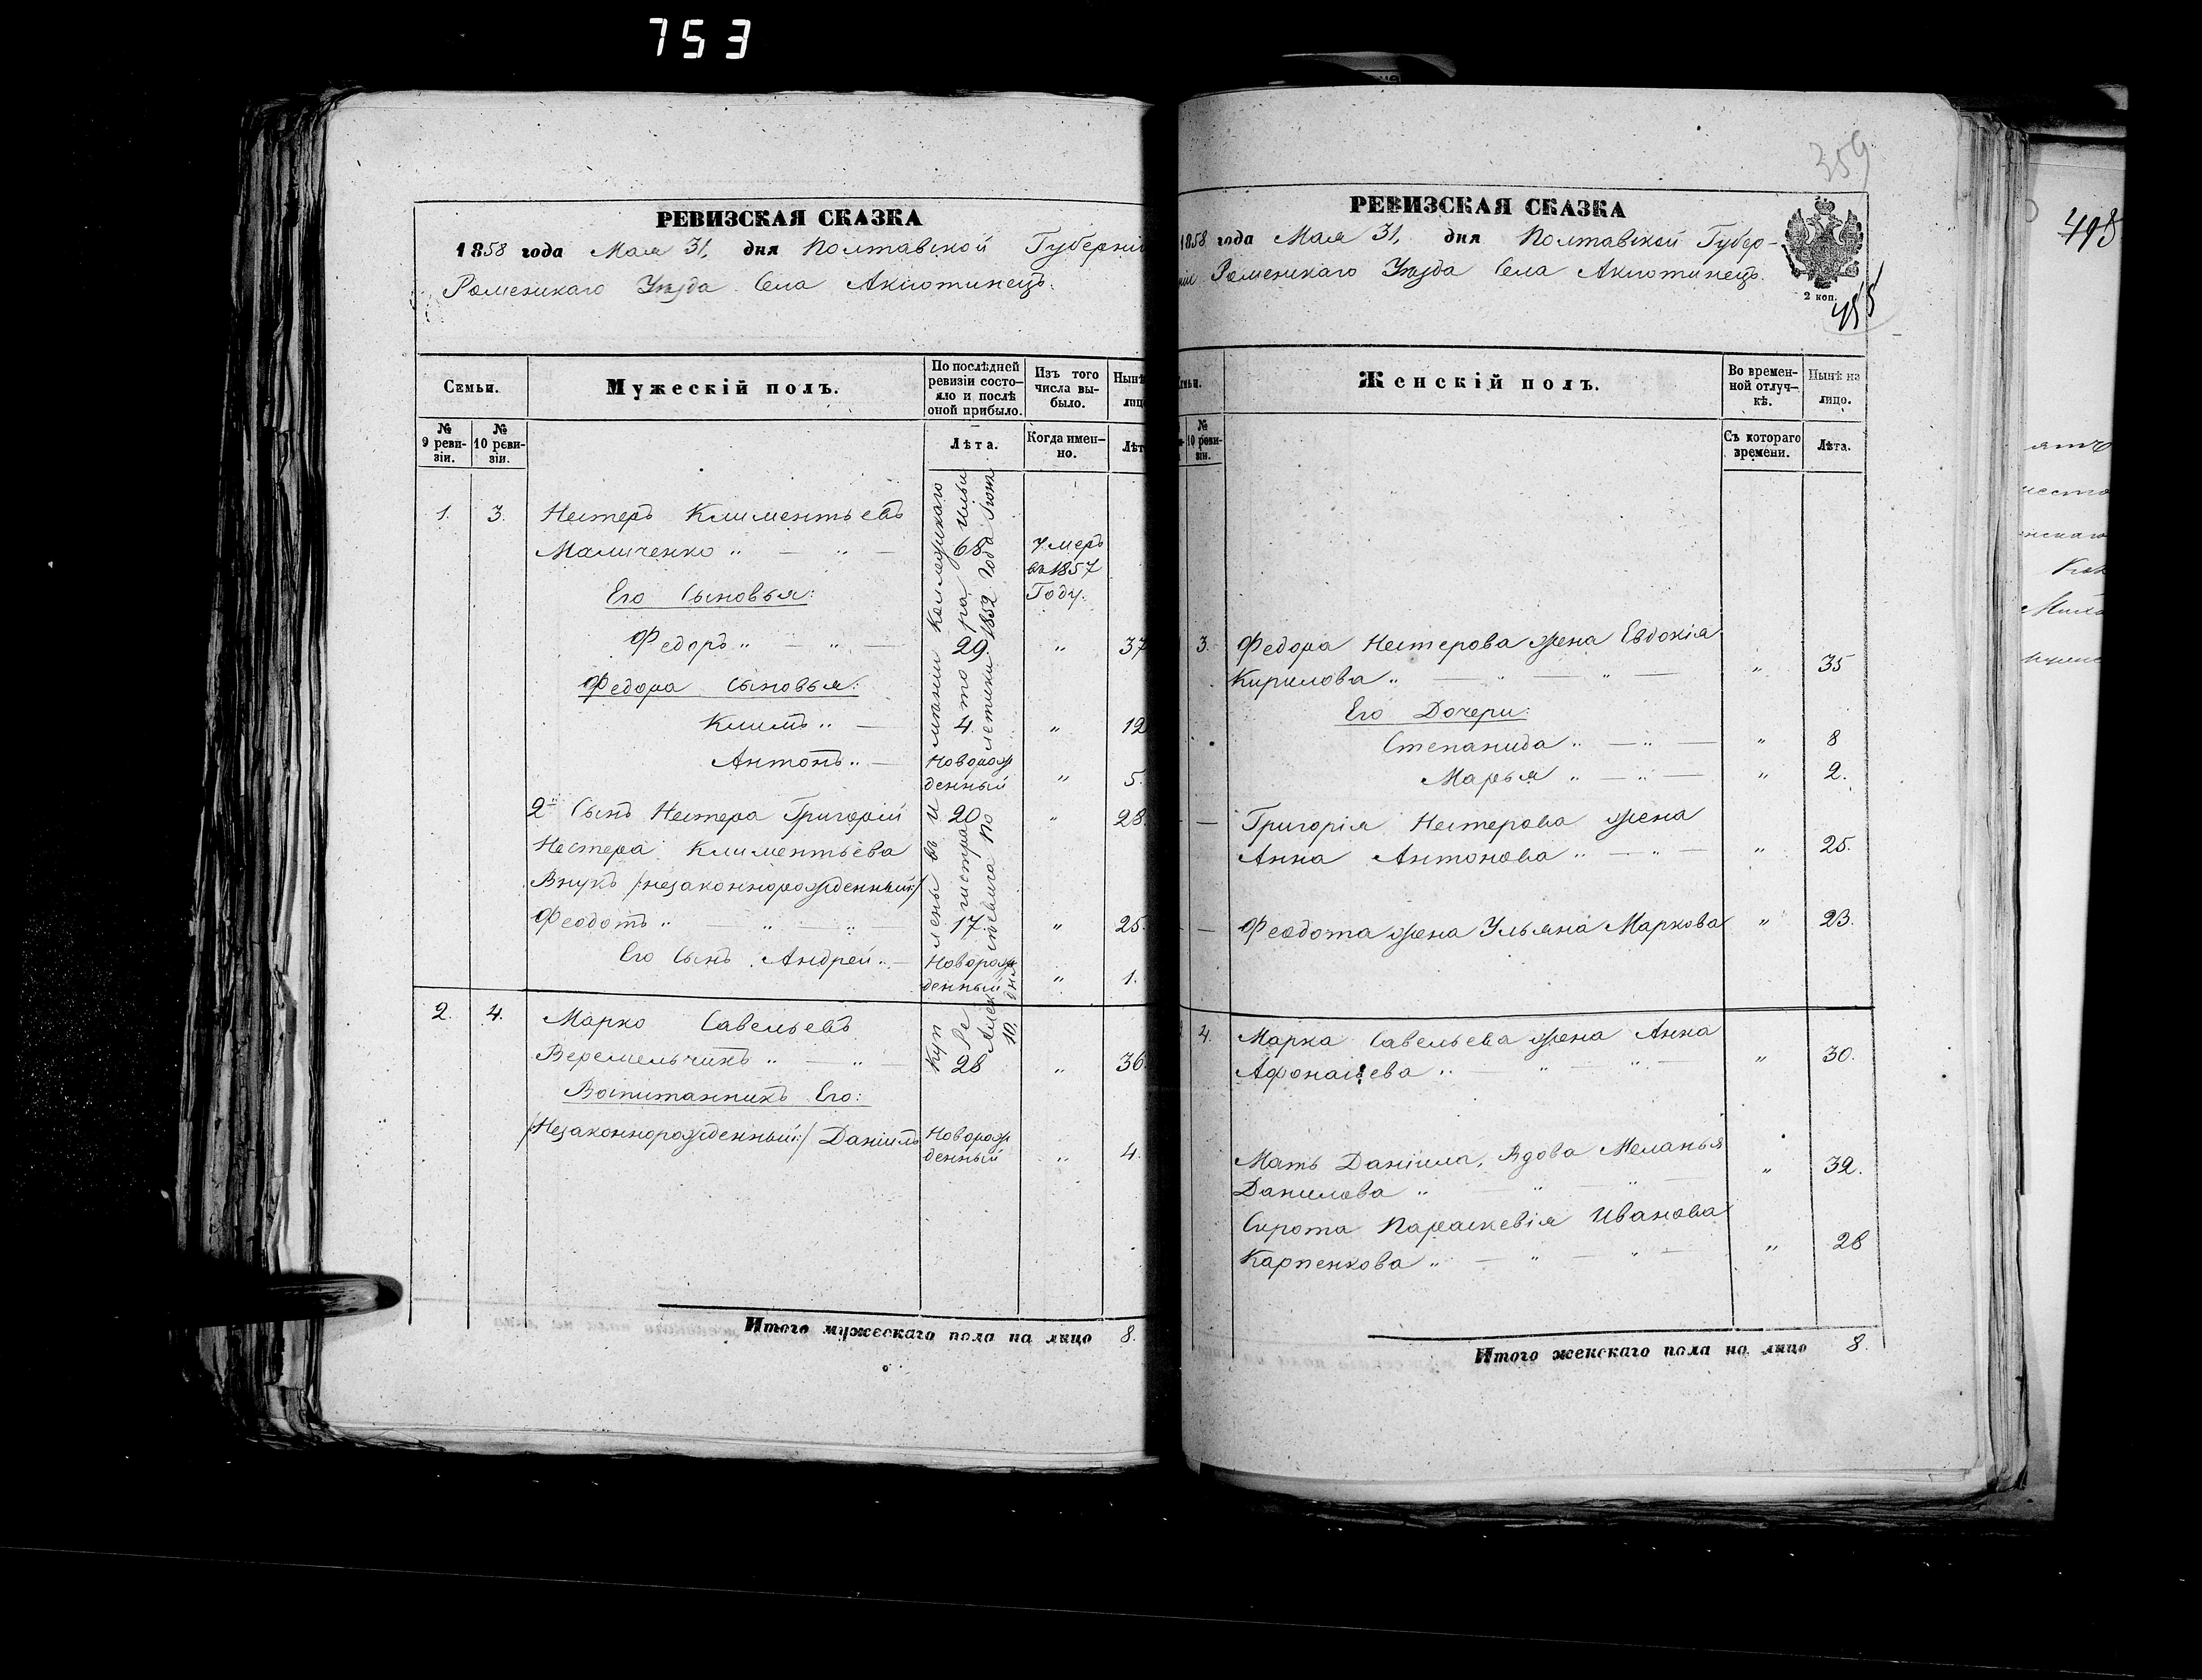 753
РЕВИЗСКАЯ СКАЗКА
1858 года Мая 31, дня Полтавской Губерніи
Роменскаго Уѣзда Села Аксютинецъ.
Семьи.
Мужескій полъ.
По послѣдней ревизіи состояло и послѣ оной прибыло.
Изъ того числа выбыло.
Нынѣ
лицо
№ 9 ревизіи.
№ 10 ревизіи.
Лѣта.
Когда именно.
Лѣт
1. 3. Нестеръ Климентьевъ
Маличенко " — " — 68 Умеръ въ 1857 Году.
Его Сыновья:
Федоръ " — " — 29. " 37
Федора Сыновья:
Климъ " — 4. " 12
Антонъ " — Новорожденный " 5.
2й Сынъ Нестера Григорій 20 " 28.
Нестера Климентьева
Внукъ /незаконнорожденный:/
Феодотъ " — " — " 17. " 25.
Его Сынъ Андрей " — Новорожденный " 1.
2. 4. Марко Савельевъ
Веремельчикъ " — " — 28 " 36.
Воспитанникъ Его:
/Незаконнорожденный:/ Даніилъ Новорожденный " 4.
Итого мужескаго пола на лицо 8.
359
РЕВИЗСКАЯ СКАЗКА
1858 года Мая 31, дня Полтавской Губер-
ніи Роменскаго Уѣзда Села Аксютинецъ.
2 коп.
Женскій полъ.
Во временной отлучкѣ.
Нынѣ на лицо.
№ 10 ревизіи.
Съ котораго времени.
Лѣта.
3. Федора Нестерова жена Евдокія
Кирилова " — " — " — " 35
Его Дочери:
Степанида " — " — " 8
Марья " — " — " 2.
— Григорія Нестерова жена
Анна Антонова " — " — " 25.
— Феодота жена Ульяна Маркова " 23.
4. Марка Савельева жена Анна
Афонасьева " — " — " — " 30.
Мать Даніила, Вдова Меланья
Данилова " — " — " — " 32.
Сирота Параскевія Иванова
Карпенкова " — " — " — " 28
Итого женскаго пола на лицо 8.
495